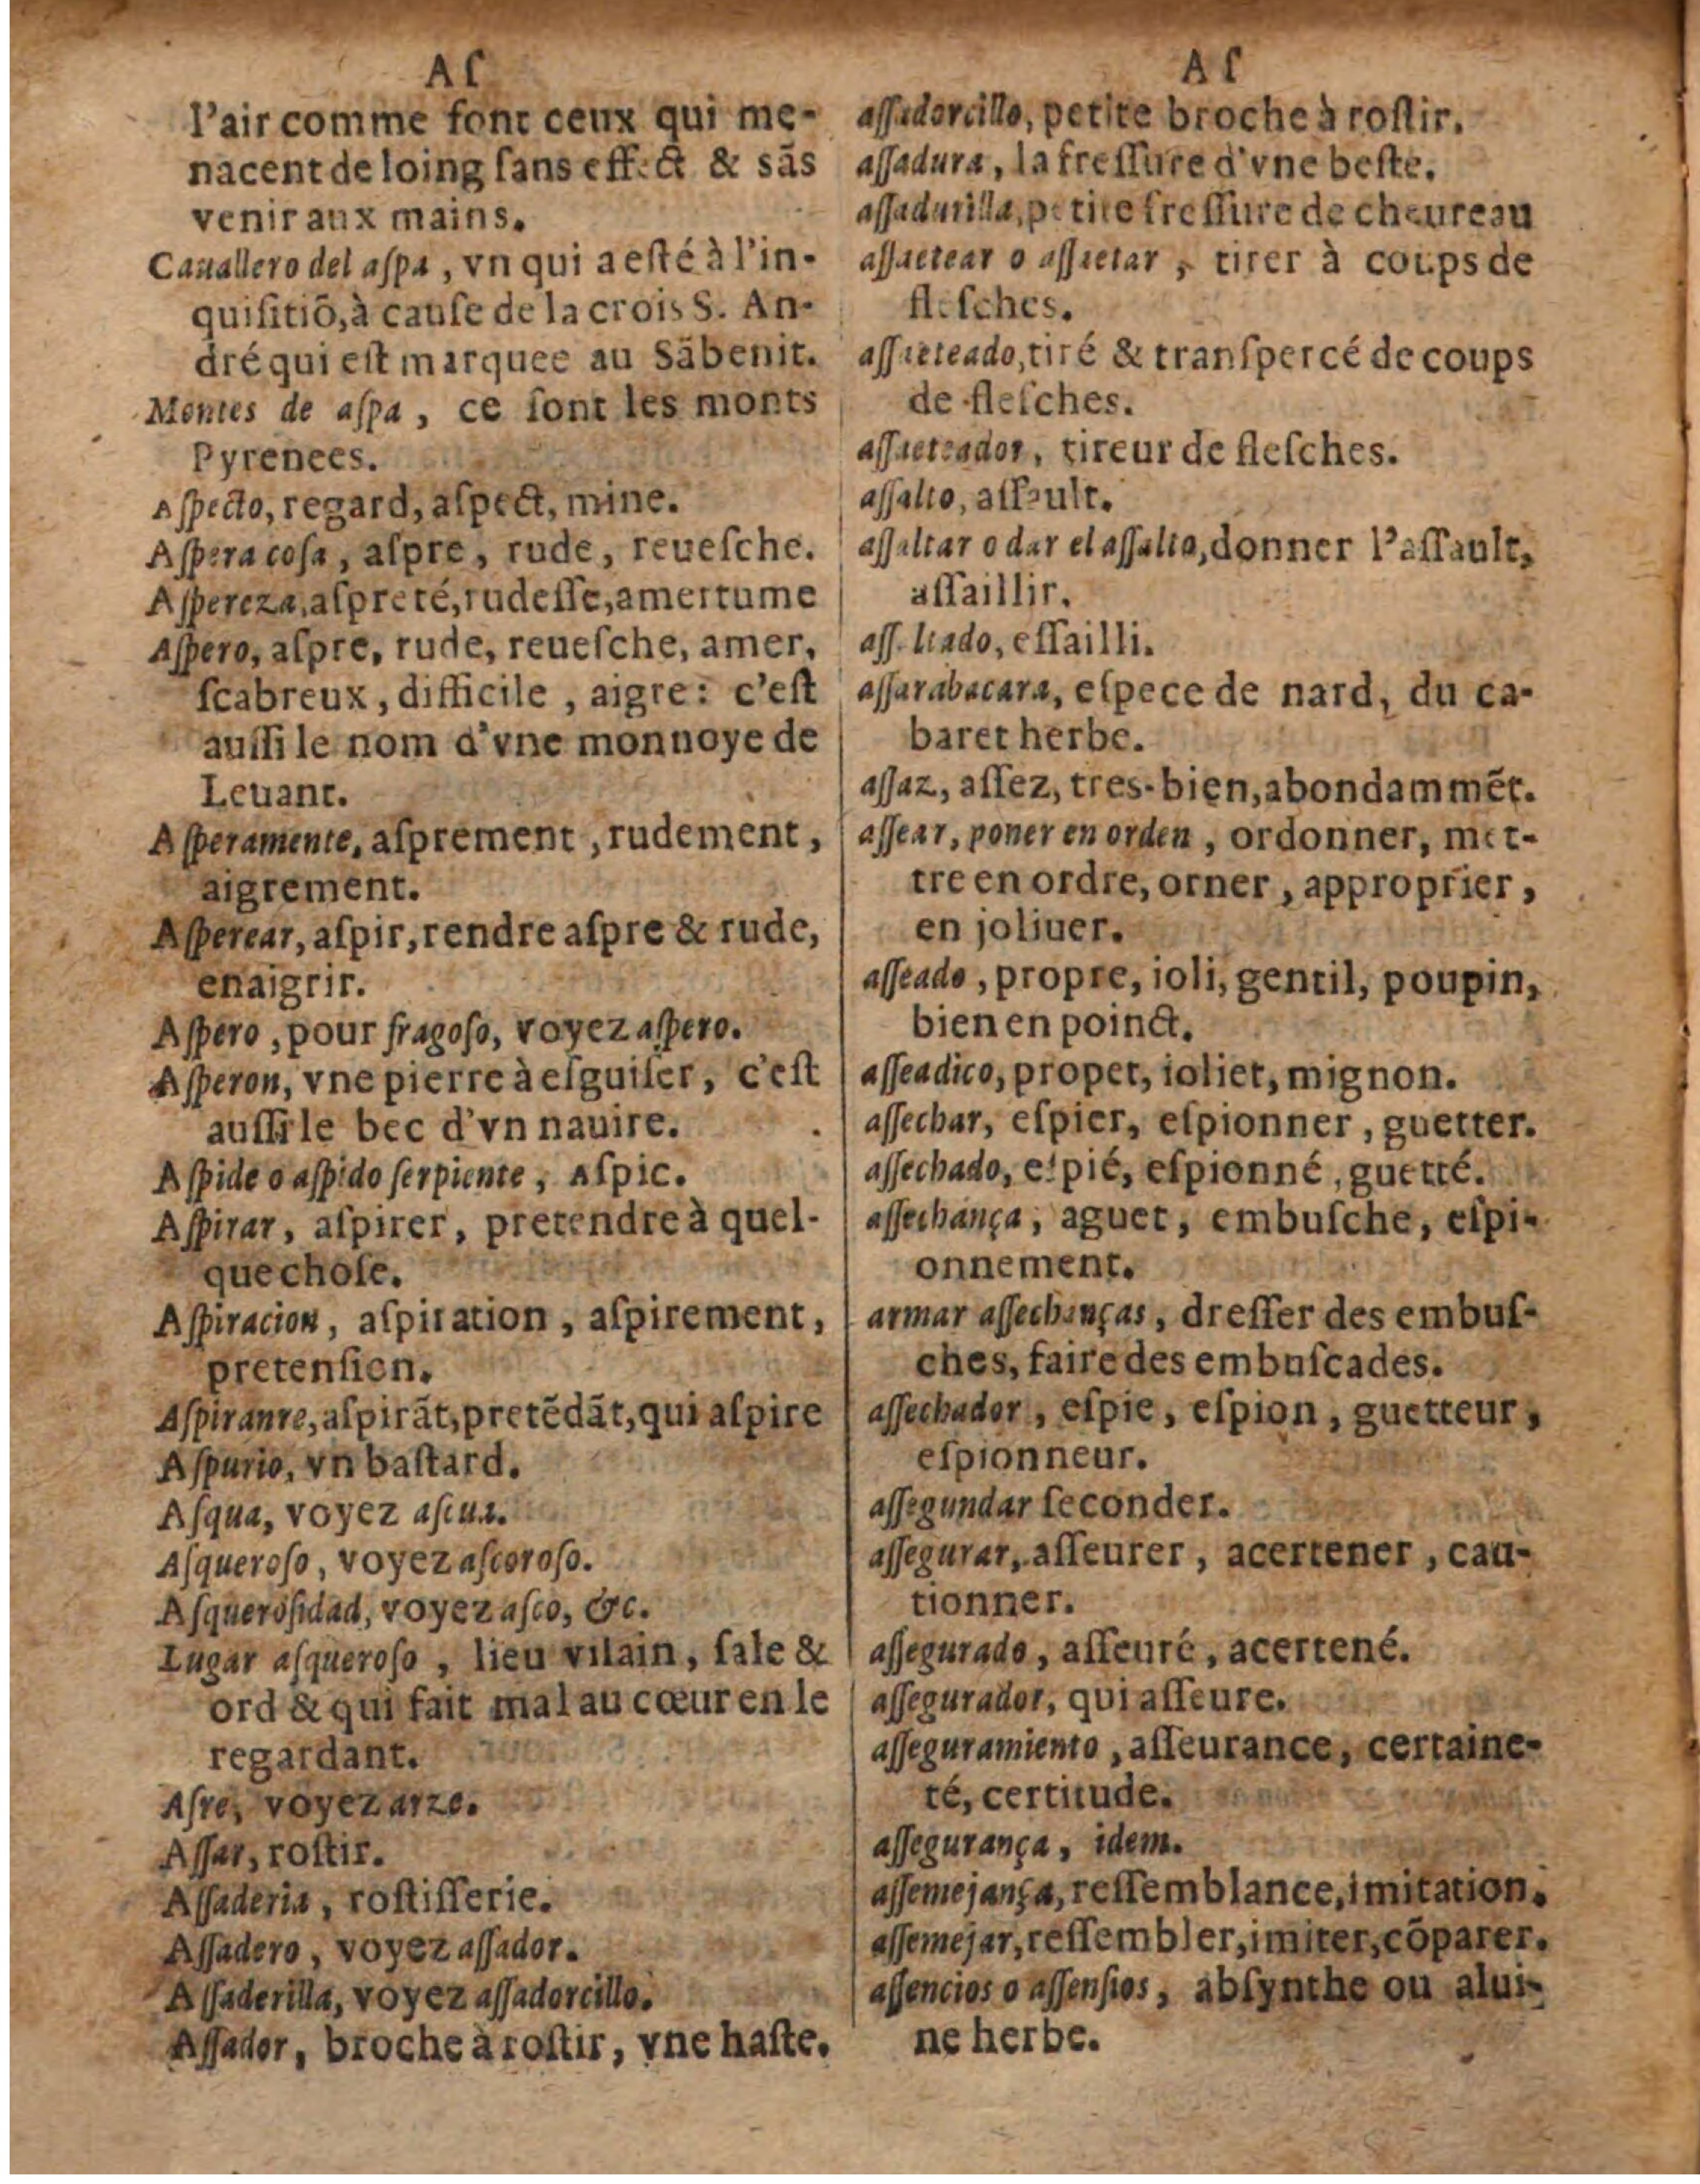 Aſ
l'air comme font ceux qui me-
nacent de loing ſans effect & sãs
venir aux mains.
Cauallero del aſpa, vn qui a eſté à l'in-
quiſitiõ, à cauſe de la crois S. An-
dré qui eſt marquee au Sãbenit.
Montes de aſpa, ce ſont les monts
Pyrenees.
Aſpecto, regard, aſpect, mine.
Aſpera coſa, aſpre, rude, reueſche.
Aſpereza, aſpreté, rudeſſe, amertume
Aſpero, aſpre, rude, reueſche, amer,
ſcabreux, difficile, aigre: c'eſt
auſſi le nom d'vne monnoye de
Leuant.
Aſperamente, aſprement, rudement,
aigrement.
Aſperear, aſpir, rendre aſpre & rude,
enaigrir.
Aſpero, pour fragoſo, voyez aſpero.
Aſperon, vne pierre à eſguiſer, c'eſt
auſſi le bec d'vn nauire.
Aſpide o aſpido ſerpiente, Aſpic.
Aſpirar, aſpirer, pretendre à quel-
que choſe.
Aſpiracion, aſpiration, aſpirement,
pretenſion.
Aſpirante, aſpirãt, pretẽdãt, qui aſpire
Aſpurio, vn baſtard.
Aſqua, voyez aſcua.
Aſqueroſo, voyez aſcoroſo.
Aſqueroſidad, voyez aſco, &c.
Lugar aſqueroſo, lieu vilain, ſale &
ord & qui fait mal au cœur en le
regardant.
Aſre, voyez arze.
Aſſar, roſtir.
Aſſaderia, roſtiſſerie.
Aſſadero, voyez aſſador.
Aſſaderilla, voyez aſſadorcillo.
Aſſador, broche à roſtir, vne haſte.
Aſ
aſſadorcillo, petite broche à roſtir.
aſſadura, la freſſure d'vne beſte.
aſſadurilla, petite freſſure de cheureau
aſſaetear o aſſaetar, tirer à coups de
fleſches.
aſſaeteado, tiré & tranſpercé de coups
de fleſches.
aſſaeteador, tireur de fleſches.
aſſalto, aſſault.
aſſaltar o dar el aſſalto, donner l'aſſault,
aſſaillir.
aſſaltado, eſſailli.
aſſarabacara, eſpece de nard, du ca-
baret herbe.
aſſaz, aſſez, tres-bien, abondammẽt.
aſſear, poner en orden, ordonner, met-
tre en ordre, orner, approprier,
en joliuer.
aſſeado, propre, ioli, gentil, poupin,
bien en poinct.
aſſeadico, propet, ioliet, mignon.
aſſechar, eſpier, eſpionner, guetter.
aſſechado, eſpié, eſpionné, guetté.
aſſechança, aguet, embuſche, eſpi-
onnement.
armar aſſechanças, dreſſer des embuſ-
ches, faire des embuſcades.
aſſechador, eſpie, eſpion, guetteur,
eſpionneur.
aſſegundar ſeconder.
aſſegurar, aſſeurer, acertener, cau-
tionner.
aſſegurado, aſſeuré, acertené.
aſſegurador, qui aſſeure.
aſſeguramiento, aſſeurance, certaine-
té, certitude.
aſſegurança, idem.
aſſemejança, reſſemblance, imitation.
aſſemejar, reſſembler, imiter, cõparer.
aſſencios o aſſenſios, abſynthe ou alui-
ne herbe.